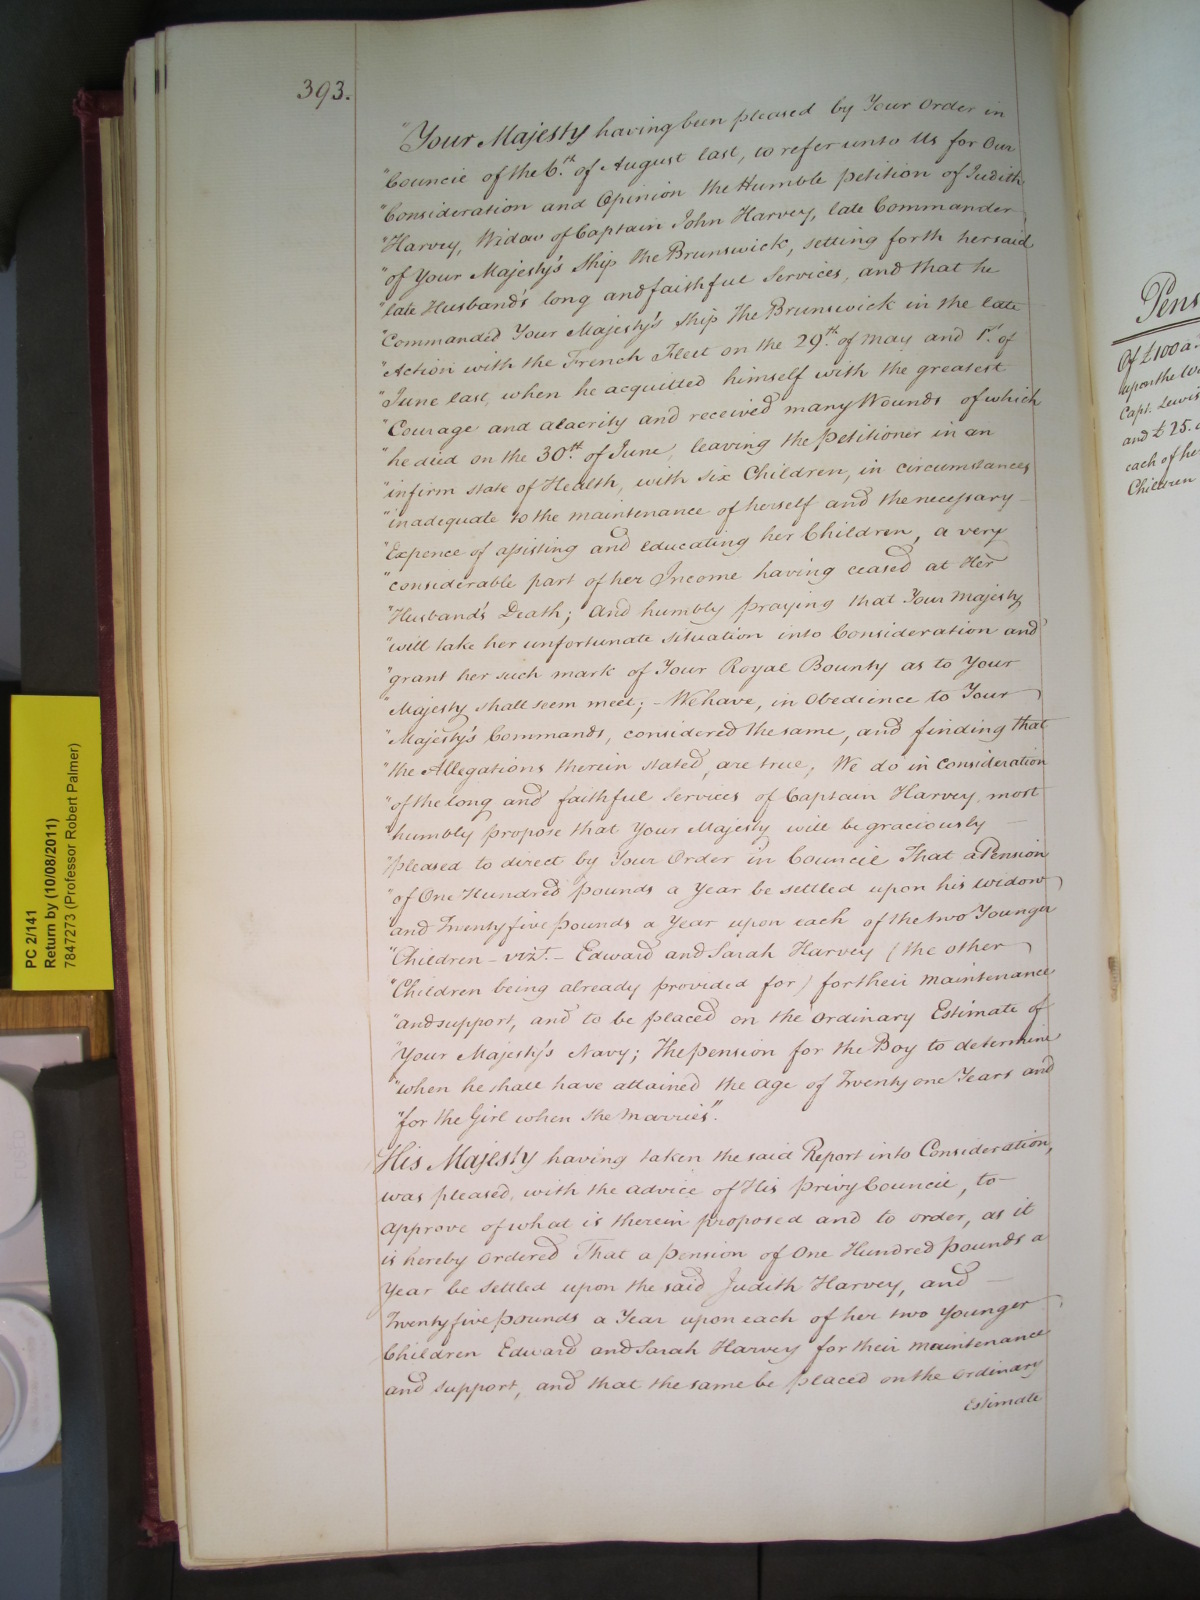 393.
"Your Majesty having been pleased by Your Order in
"Council of the 6.th of August last, to refer unto Us for Our
"Consideration and Opinion the Humble petition of Judith
"Harvey, Widow of Captain John Harvey, late Commander
"of Your Majesty's Ship the Brunswick, setting forth her said
"late Husband's long and faithful Services, and that he
"Commanded Your Majesty's Ship The Brunswick in the late
"Action with the French Fleet on the 29.th of May and 1.st of
"June last, when he acquitted himself with the greatest
"Courage and alacrity and received many Wounds of which
"he died on the 30.th of June, leaving the petitioner in an
"infirm state of Health, with six Children, in circumstances
"inadequate to the maintenance of herself and the necessary
"Expence of assisting and educating her Children, a very
"considerable part of her Income having ceased at Her
"Husband's Death; And humbly praying that Your Majesty
"will take her unfortunate situation into Consideration and
"grant her such mark of Your Royal Bounty as to Your
"Majesty shall seem meet; - We have, in Obedience to Your
"Majesty's Commands, considered the same, and finding that
"the Allegations therein stated, are true, We do in Consideration
"of the long and faithful Services of Captain Harvey, most
"humbly propose that Your Majesty will be graciously
"pleased to direct by Your Order in Council That a Pension
"of One Hundred pounds a Year be settled upon his Widow
"and Twenty five pounds a Year upon each of the two Younger
"Children - vizt. - Edward and Sarah Harvey (the other
"Children being already provided for) for their maintenance
"and support, and to be placed on the Ordinary Estimate of
"Your Majesty's Navy; The pension for the Boy to determine
"when he shall have attained the age of Twenty one Years and
"for the Girl when she Marries".
His Majesty having taken the said Report into Consideration,
was pleased, with the advice of His Privy Council, to
approve of what is therein proposed and to order, as it
is hereby Ordered That a pension of One Hundred pounds a
Year be settled upon the said Judith Harvey, and
Twenty five pounds a Year upon each of her two Younger
Children Edward and Sarah Harvey for their maintenance
and support, and that the same be placed on the Ordinary
Estimate
Of £100 a
upon the
Capt. Lewis
and £25.
each of he
Children
PC 2/141
Return by (10/08/2011)
7847273 (Professor Robert Palmer)